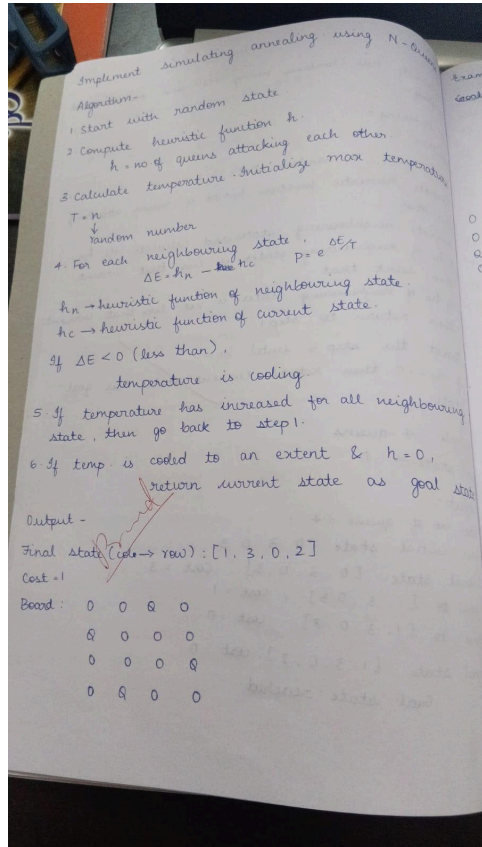 Implement simulating annealing using N-Queens
Algorithm-
1 Start with random state
2 Compute heuristic function h.
h = no of queens attacking each other.
3 Calculate temperature. Initialize max temperature
T = n
↓
random number
4. For each neighbouring state,
ΔE = hn - hc P = e ΔE/T
hn → heuristic function of neighbouring state.
hc → heuristic function of current state.
If ΔE < 0 (less than),
temperature is cooling
5. If temperature has increased for all neighbouring
state, then go back to step 1.
6. If temp. is cooled to an extent & h = 0,
return current state as goal state
Output -
Final state (cols → row) : [1, 3, 0, 2]
Cost = 1
Board : 0 0 Q 0
Q 0 0 0
0 0 0 Q
0 Q 0 0
0
0
Q